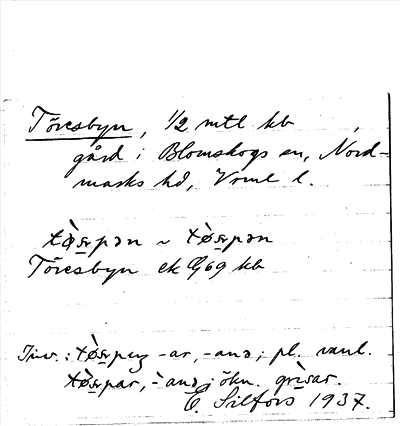 Töresbyn, 1/2 mtl kb
gård i Blomskogs sn, Nord-
marks hd, Vrml l.
tø̀ʂpən ~ tø̀ʂpən
Töresbyn ek 69 kb
Inv.: -ar, -ana; pl. vanl.
-ana; ökn. grìsar.
E. Silfors 1937.